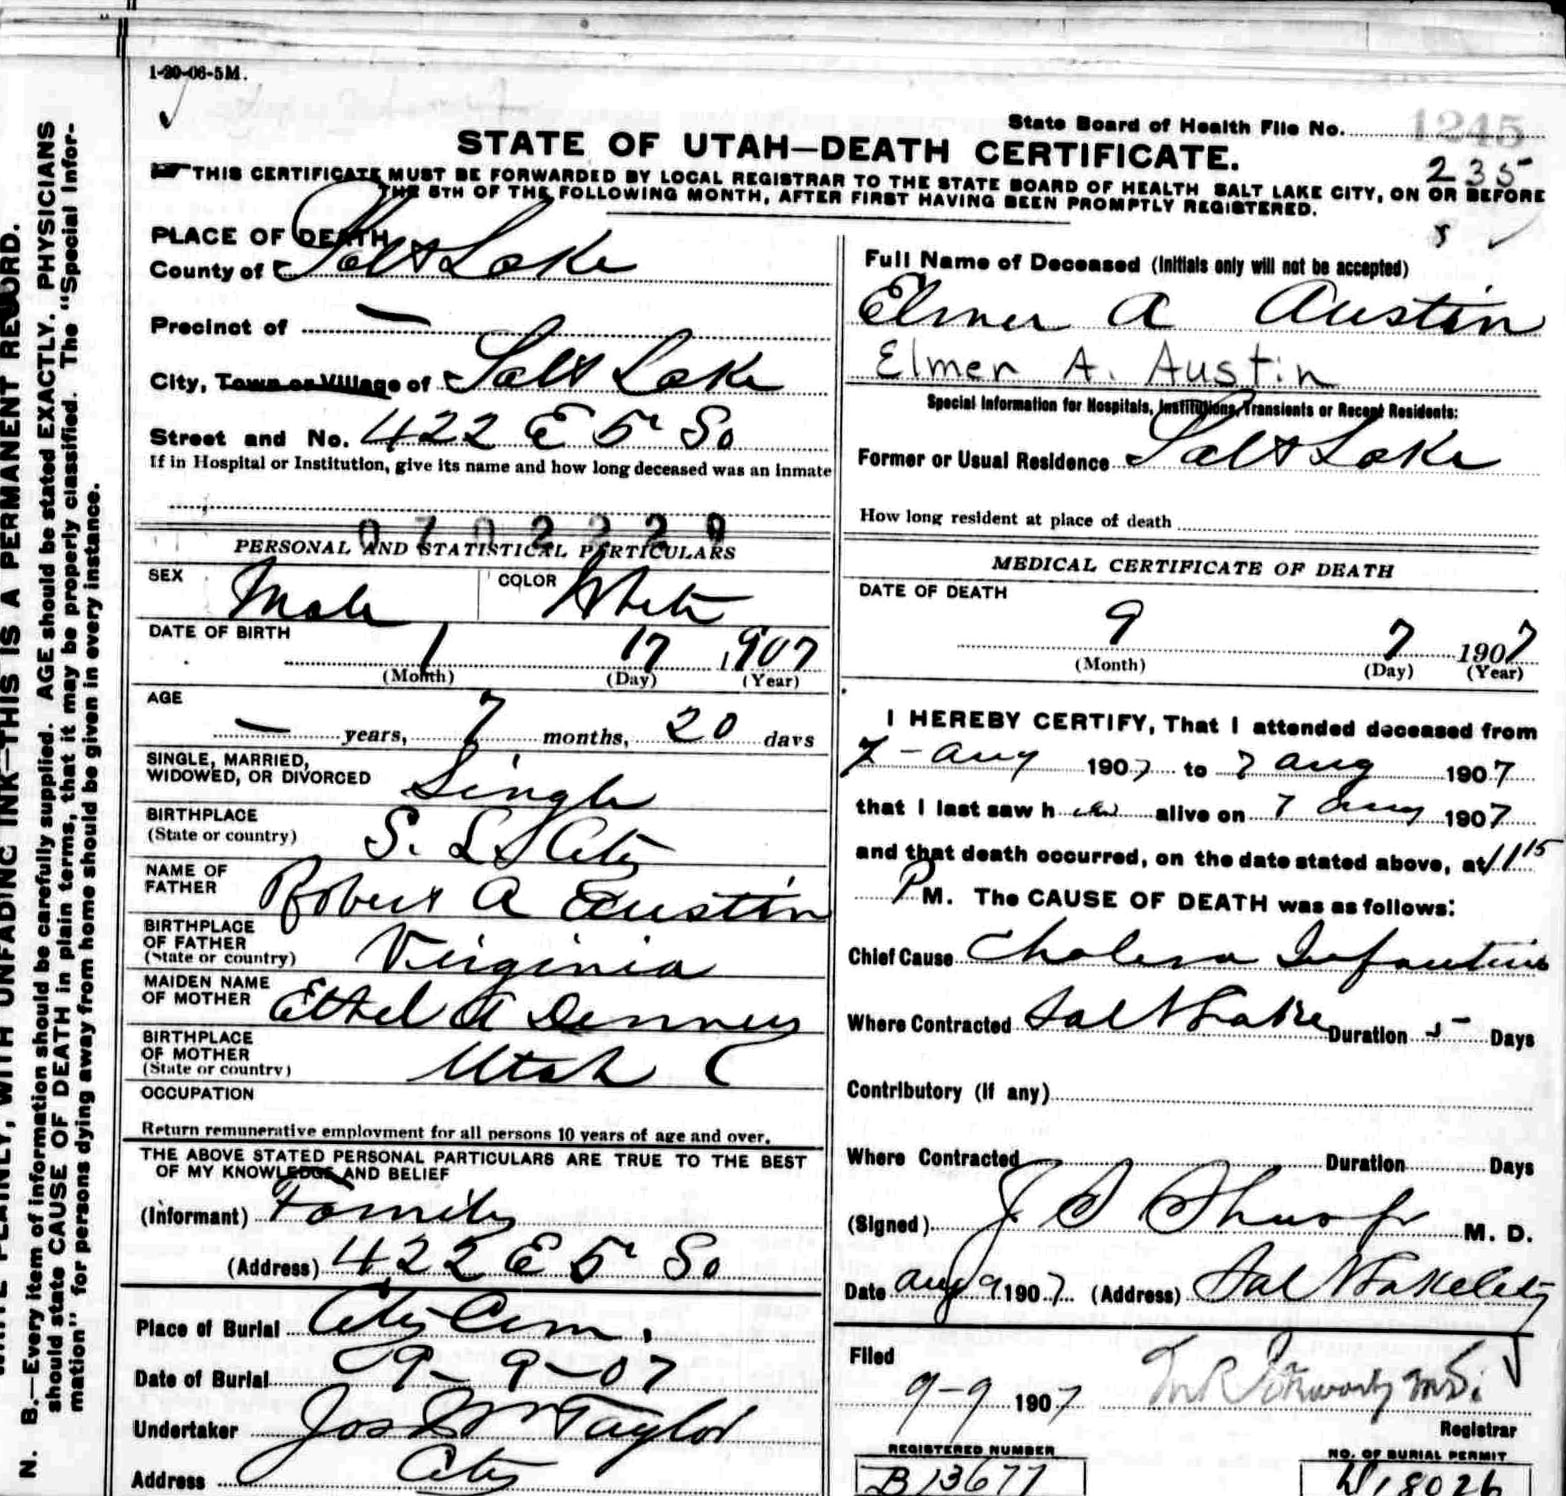 1-20-06-5M.
State Board of Health File No. 1245
STATE OF UTAH—DEATH CERTIFICATE.
235
THIS CERTIFICATE MUST BE FORWARDED BY LOCAL REGISTRAR TO THE STATE BOARD OF HEALTH SALT LAKE CITY, ON OR BEFORE
THE 5TH OF THE FOLLOWING MONTH, AFTER FIRST HAVING BEEN PROMPTLY REGISTERED.
N. B.—Every item of information should be carefully supplied. AGE should be stated EXACTLY. PHYSICIANS
should state CAUSE OF DEATH in plain terms, that it may be properly classified. The "Special Infor-
mation" for persons dying away from home should be given in every instance.
PLAINLY, WITH UNFADING INK—THIS IS A PERMANENT RECORD.
PLACE OF DEATH
County of Salt Lake
Precinct of —
City, Town or Village of Salt Lake
Street and No. 422 E 5" So
If in Hospital or Institution, give its name and how long deceased was an inmate
0702229
PERSONAL AND STATISTICAL PARTICULARS
SEX Male COLOR White
DATE OF BIRTH
1 17 1907
(Month) (Day) (Year)
AGE
— years, 7 months, 20 days
SINGLE, MARRIED,
WIDOWED, OR DIVORCED Single
BIRTHPLACE
(State or country) S. L. City
NAME OF
FATHER Robert A Austin
BIRTHPLACE
OF FATHER
(State or country) Virginia
MAIDEN NAME
OF MOTHER Ethel A Denney
BIRTHPLACE
OF MOTHER
(State or country) Utah
OCCUPATION
Return remunerative employment for all persons 10 years of age and over.
THE ABOVE STATED PERSONAL PARTICULARS ARE TRUE TO THE BEST
OF MY KNOWLEDGE AND BELIEF
(Informant) Family
(Address) 422 E 5" So
Place of Burial City Cem.
Date of Burial 9-9-07
Undertaker Jos Wm Taylor
Address City
Full Name of Deceased (Initials only will not be accepted)
Elmer A Austin
Elmer A. Austin
Special Information for Hospitals, Institutions, Transients or Recent Residents:
Former or Usual Residence Salt Lake
How long resident at place of death
MEDICAL CERTIFICATE OF DEATH
DATE OF DEATH
9 7 1907
(Month) (Day) (Year)
I HEREBY CERTIFY, That I attended deceased from
7-aug 1907 to 7 aug 1907
that I last saw h alive on 7 aug 1907
and that death occurred, on the date stated above, at 11 15
P M. The CAUSE OF DEATH was as follows:
Chief Cause Cholera Infantum
Where Contracted Salt Lake Duration 5 Days
Contributory (if any)
Where Contracted Duration Days
(Signed) M. D.
Date aug 9 1907 (Address) Salt Lake City
Filed
9-9 1907
Registrar
REGISTERED NUMBER
B13677
NO. OF BURIAL PERMIT
18026